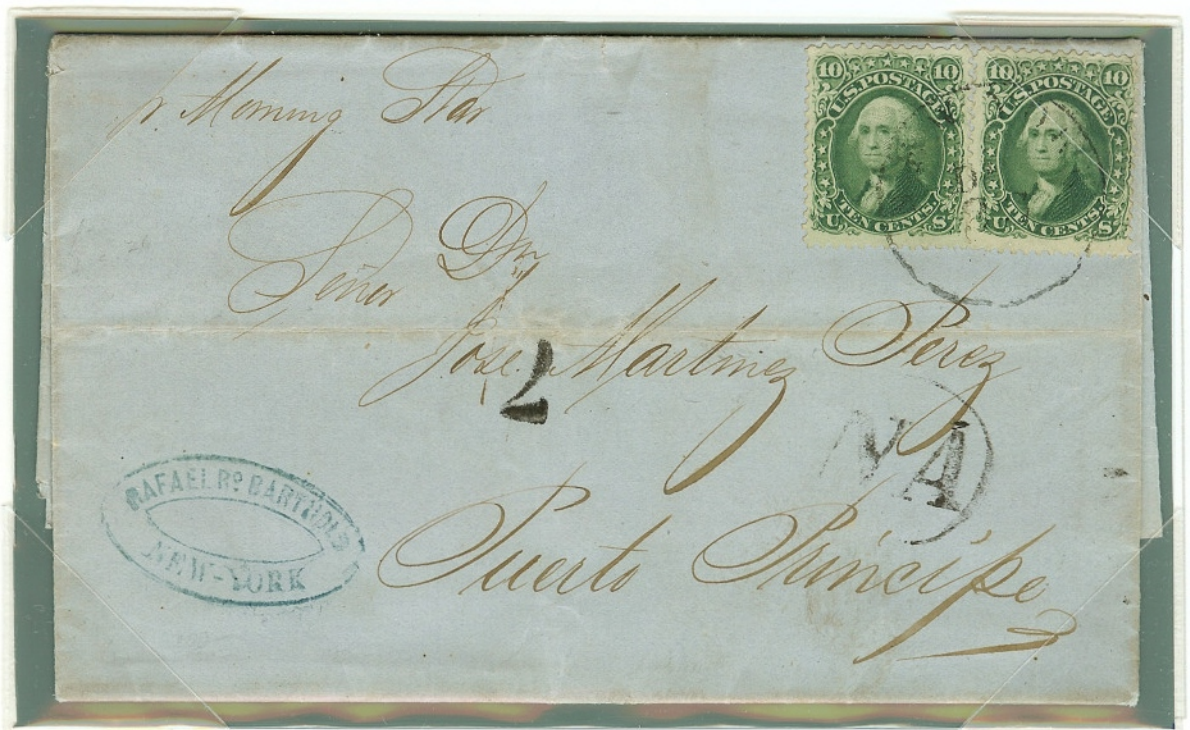 pr Morning Star
10 10
U.S. POSTAGE
TEN CENTS.
U S
10 10
U.S. POSTAGE
TEN CENTS.
U S
Señor Dn
José Martinez Perez
2
NA
RAFAEL Ro BARTHOLD
NEW-YORK
Puerto Príncipe